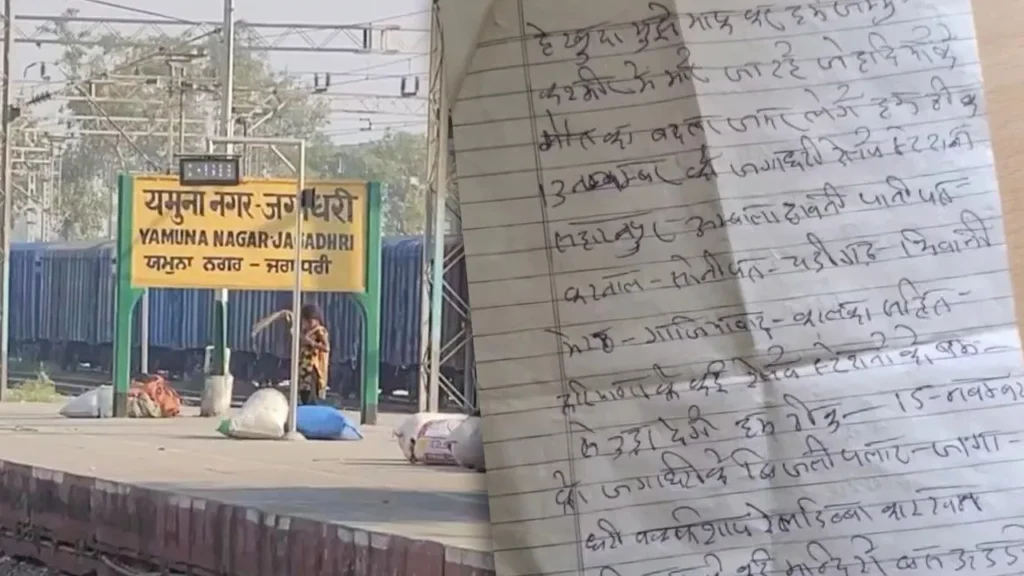 यमुना नगर-जगाधरी
YAMUNA NAGAR-JAGADHRI
ਯਮੁਨਾ ਨਗਰ - ਜਗਾਧਰੀ
हे खुदा मुझे माफ कर हम जम्मु
कश्मीर में मारे जा रहे जे हादि यो के
मौत का बदला जरूर लेगें हम ठीक
13 नवम्बर को जगाधरी रेलवे स्टेशनो
सहारनपुर - अम्बाला पानीपत -
करनाल - सोनीपत - चडीगढ - भिवानी
मेरठ - गाजियाबाद - कालका सहित -
हरियाणा के कई रेलवे स्टेशनो को बम -
से उड़ा देगें हम ठीक - 15 - नवम्बर
को जगाधरी के बिजली पलांट - जगा -
धरी वर्कशाप रेल डिब्बा कारखाना